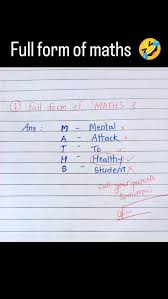 Full form of maths 🤣
① full form of "MATHS"?
Ans: M - Mental
A - Attack
T - To
H - Healthy
S - Student
Call your parents
tomorrow